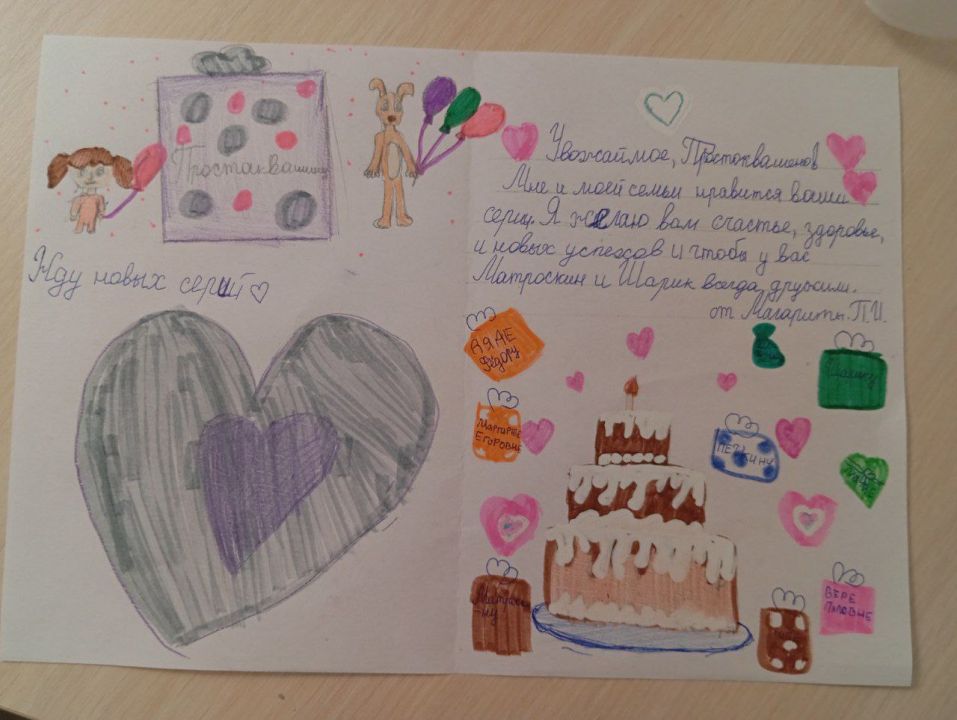 Простоквашино
Жду новых серий
Уважаймое, Простоквашено!
Мне и моей семьи нравится ваши
серии. Я желаю вам счастье, здоровье,
и новых успехов и чтобы у вас
Матроскин и Шарик всегда дружили.
от Магариты. П.И.
ДЯДЕ
Фёдору
Маргарите
ЕГОРОВНЕ
ПЕЧКИНУ
Шарику
Матроски
-ну
ВЕРЕ
ПАВЛОВНЕ